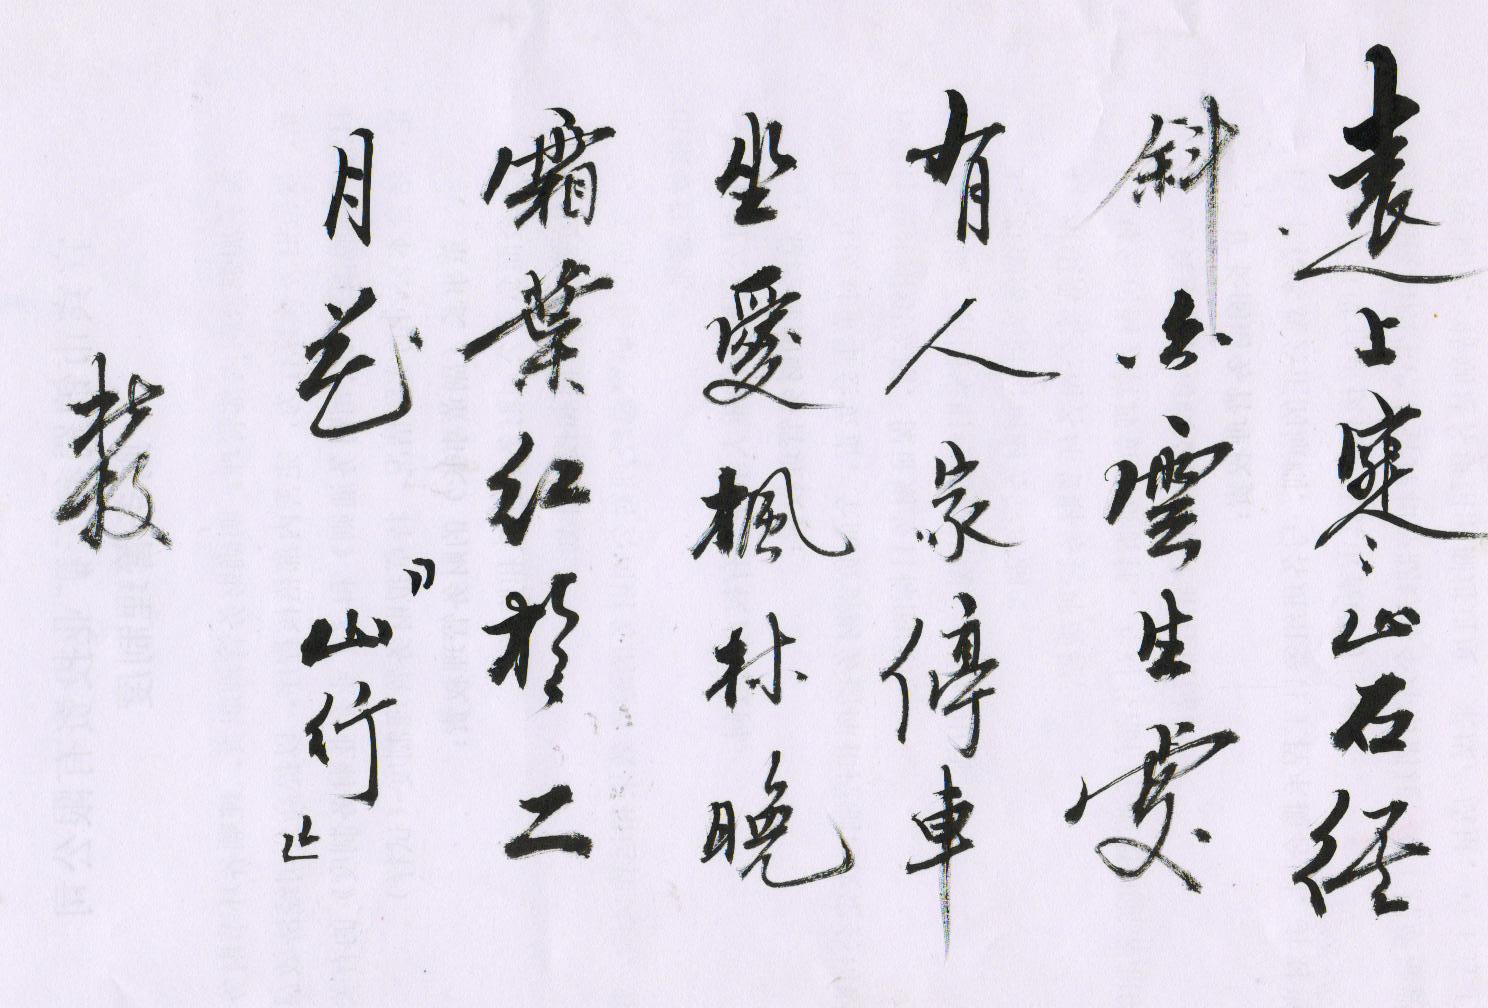 遠上寒山石径
斜白雲生處
有人家停車
坐愛楓林晚
霜葉红於二
月花『山行』